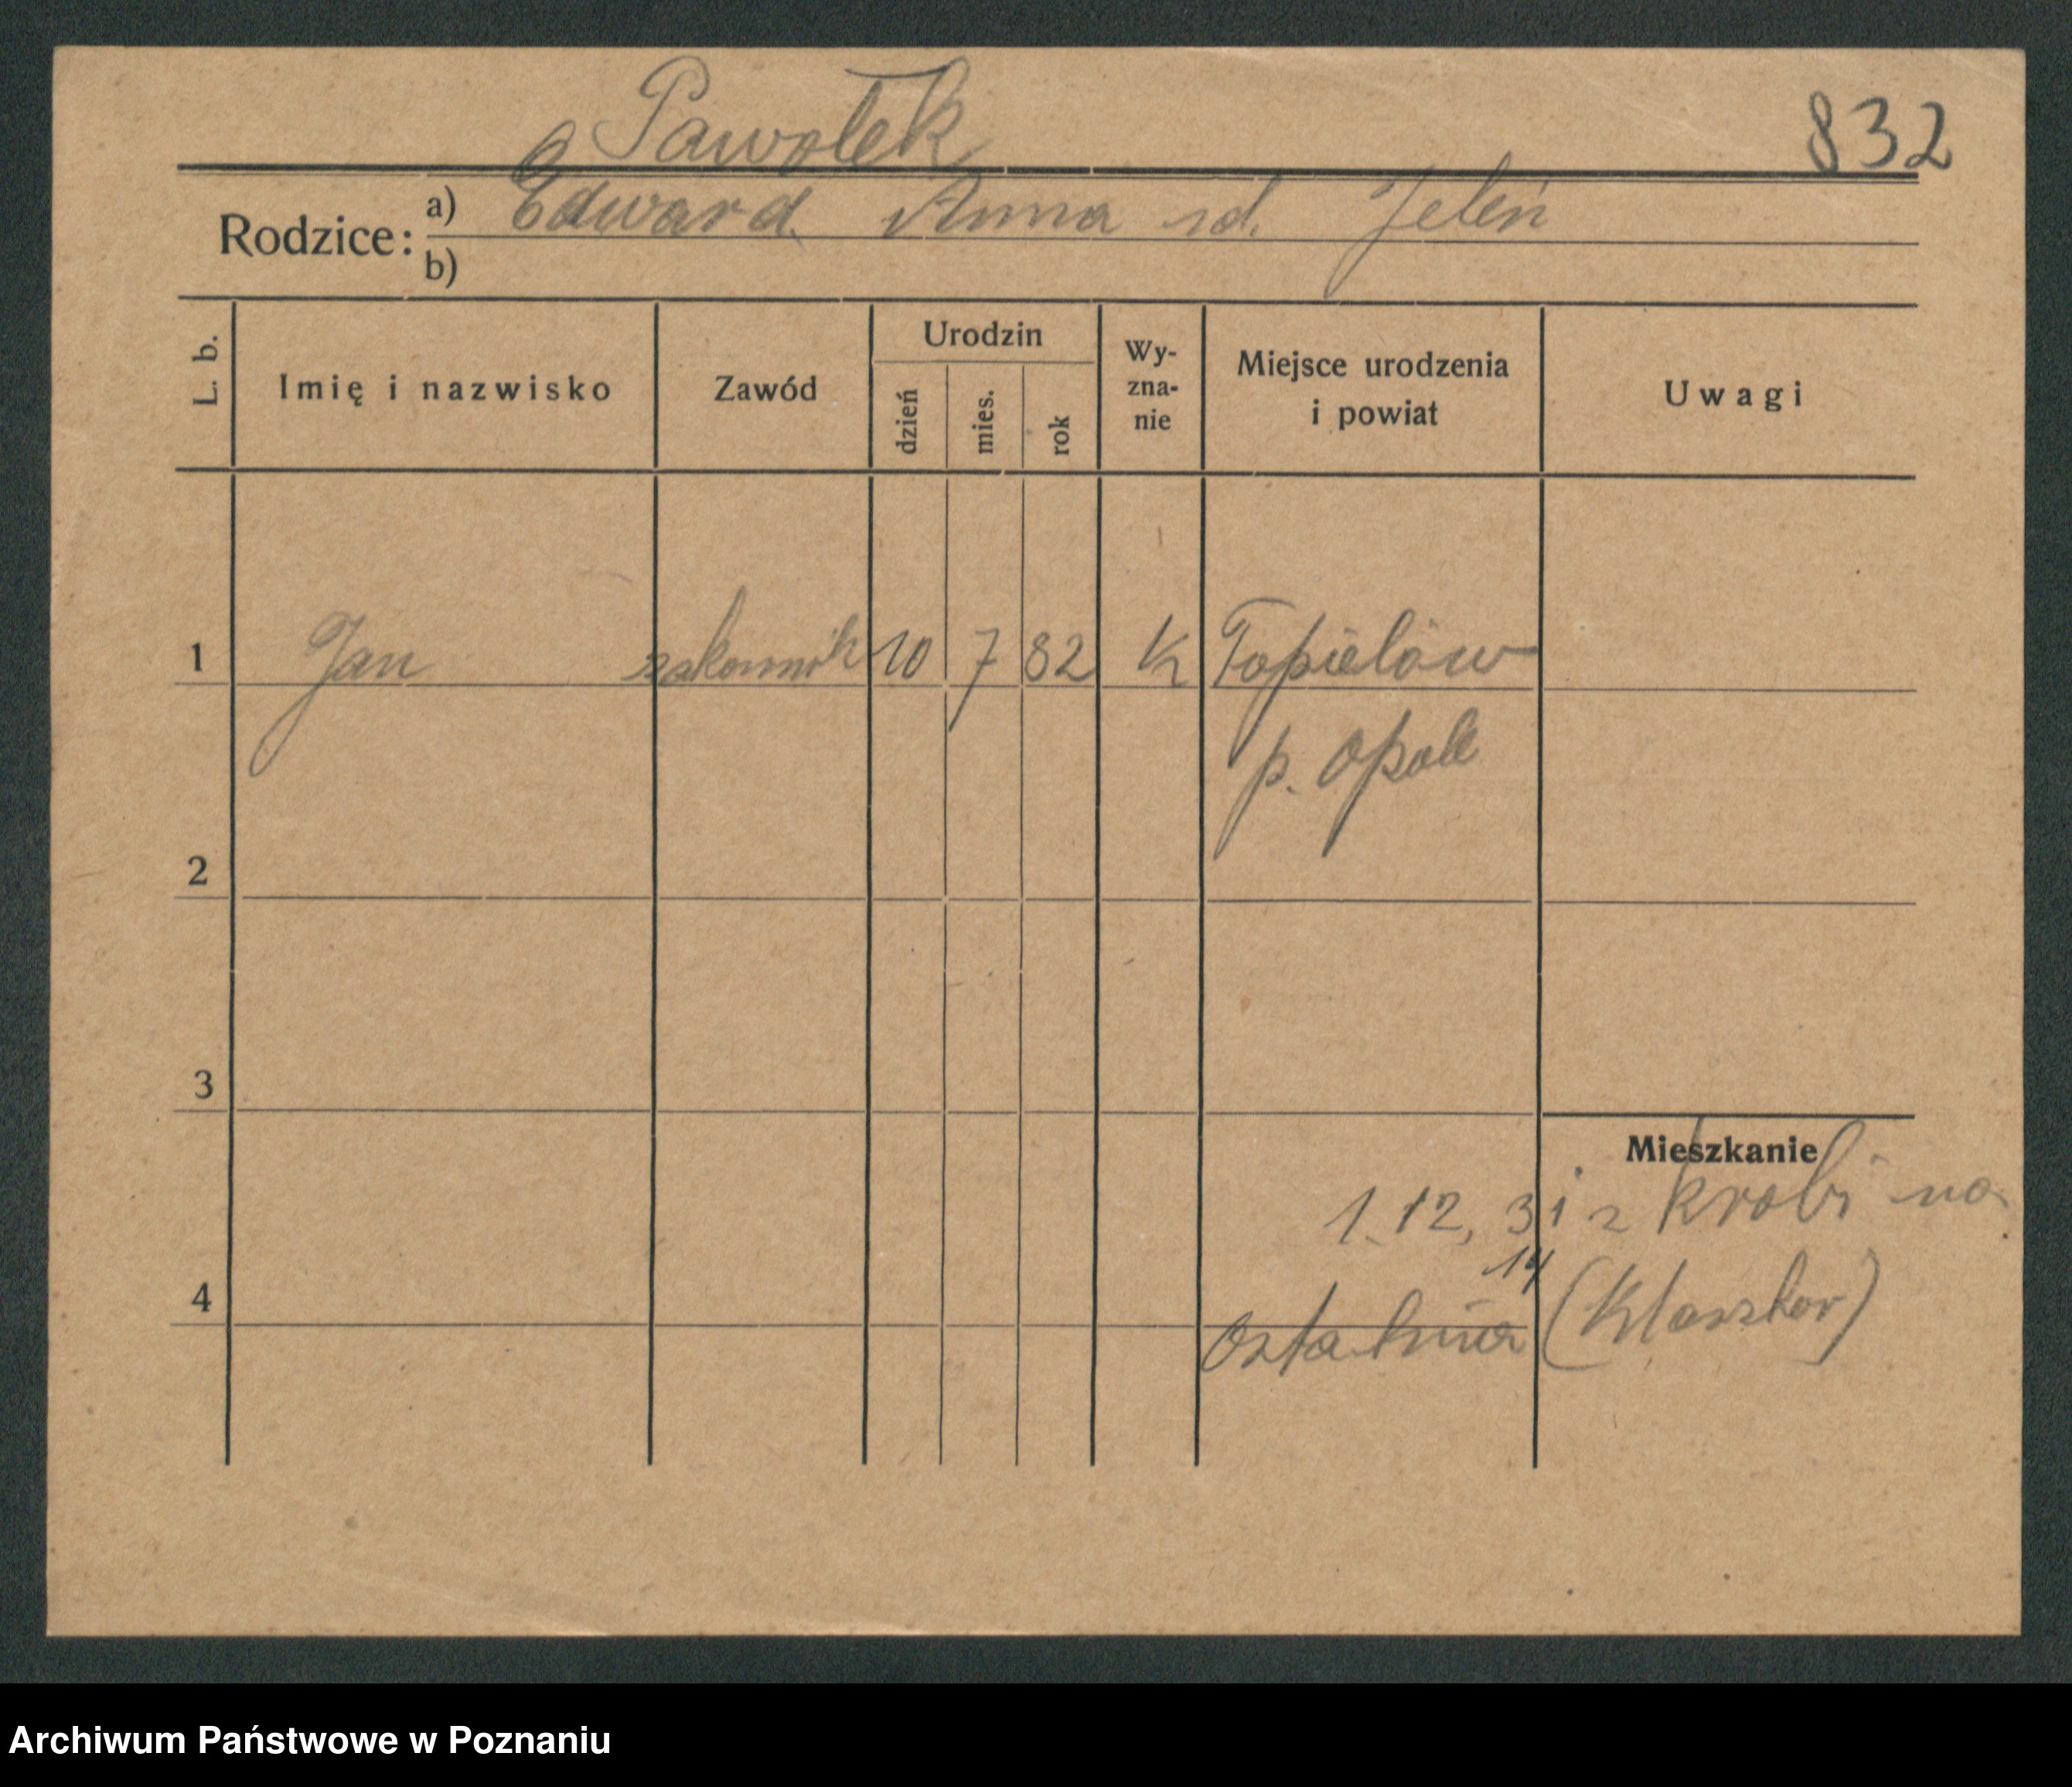 Pawołek
832
Rodzice: a) Edward Anna rd. Jeleń
b)
L. b. Imię i nazwisko Zawód Urodzin dzień mies. rok Wyzna-nie Miejsce urodzenia i powiat Uwagi
1 Jan zakonnik 10 7 82 K Popielów
p. Opole
2
3
Mieszkanie
1. 12, 31 z Krobi na
14
4 (Klasztor)
Archiwum Państwowe w Poznaniu